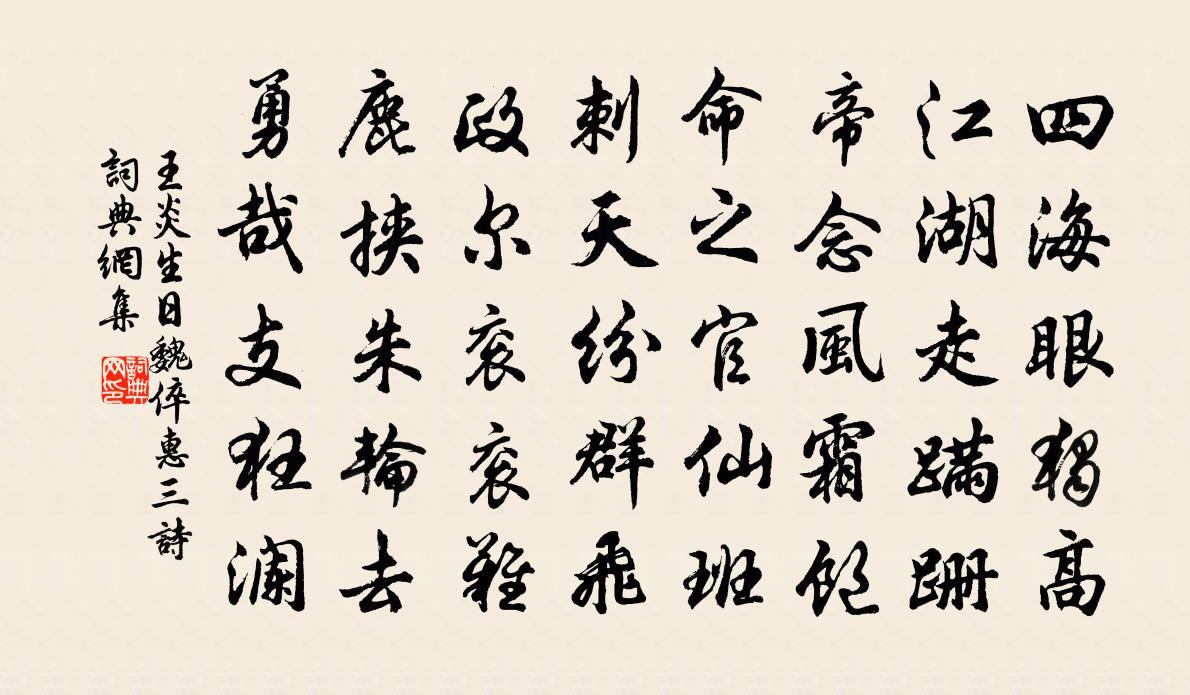 四海眼獨高
江湖走蹣跚
帝念風霜飽
命之官仙班
刺天紛群飛
政尔袞袞難
鹿挾朱輪去
勇哉支狂澜
王炎生日魏倅惠三詩
詞典網集
詞典
网印